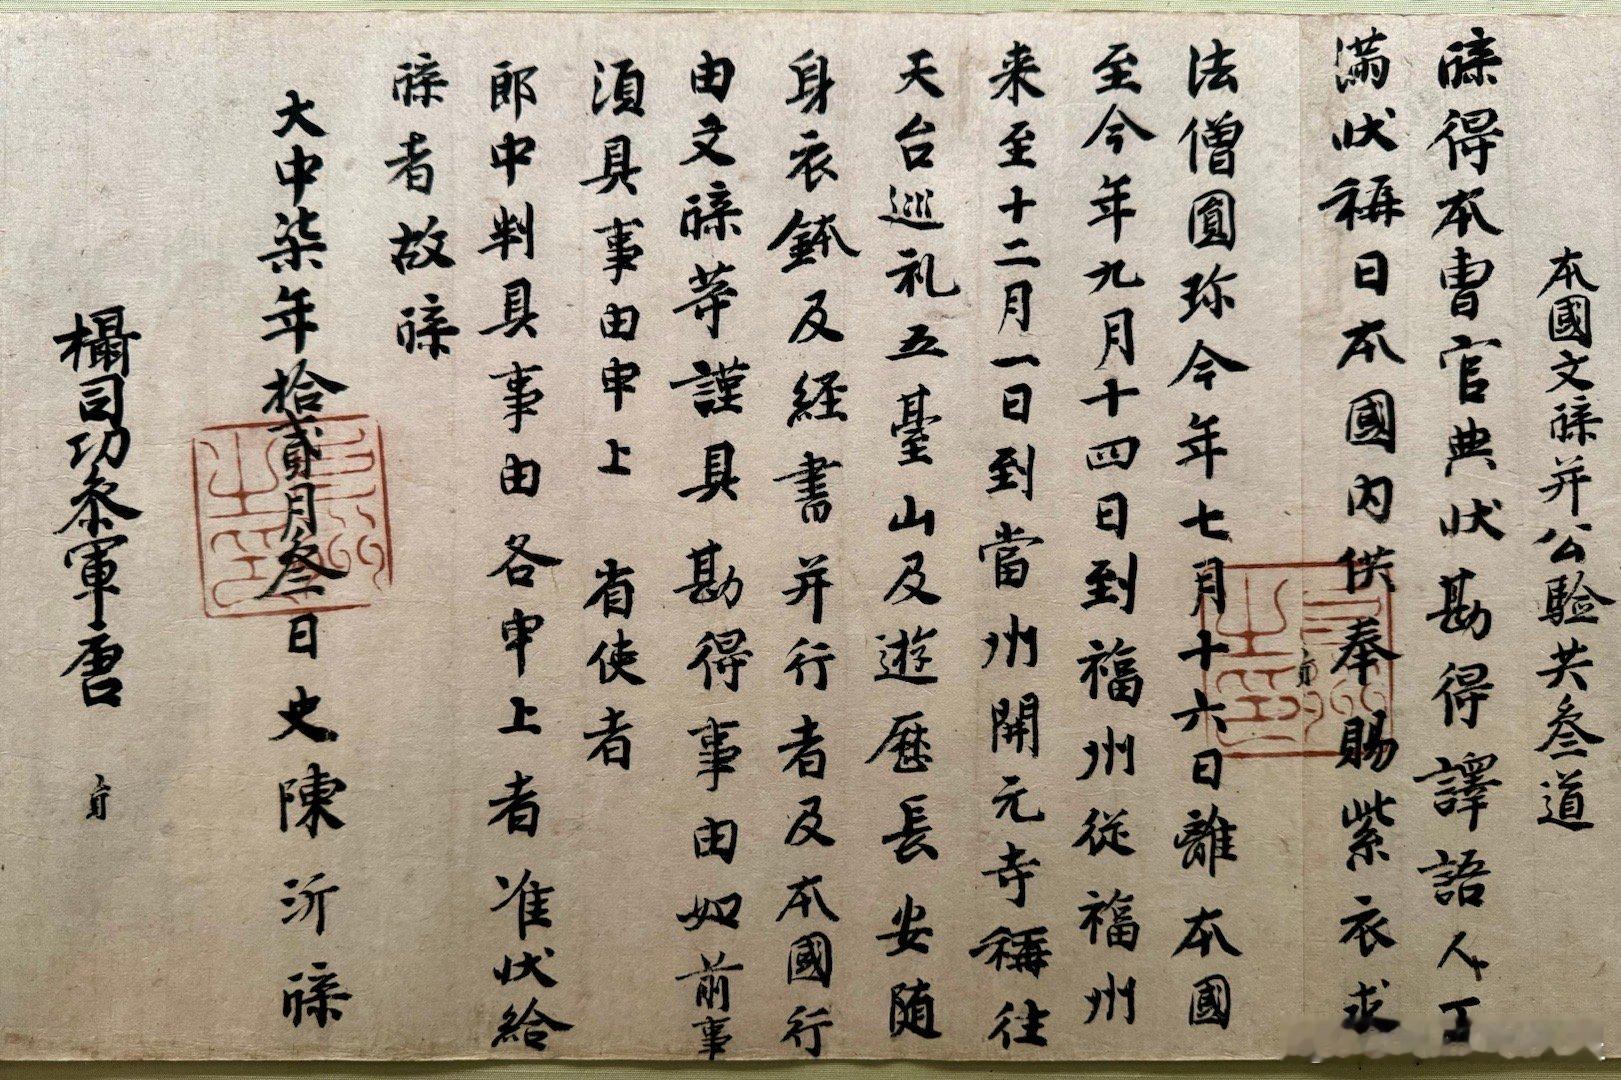 本國文牒并公驗共叁道
牒得本曹官典狀勘得譯語人丁
滿狀稱日本國內供奉賜紫衣求
法僧圓珎今年七月十六日離本國
至今年九月十四日到福州從福州
来至十二月一日到當州開元寺稱往
天台巡礼五臺山及遊歷長安随
身衣鉢及経書并行者及本國行
由文牒等謹具勘得事由如前事
湏具事由申上 省使者
郎中判具事由各申上者准狀給
牒者故牒
大中柒年拾貳月叁日史陳沂牒
攝司功叅軍唐 員